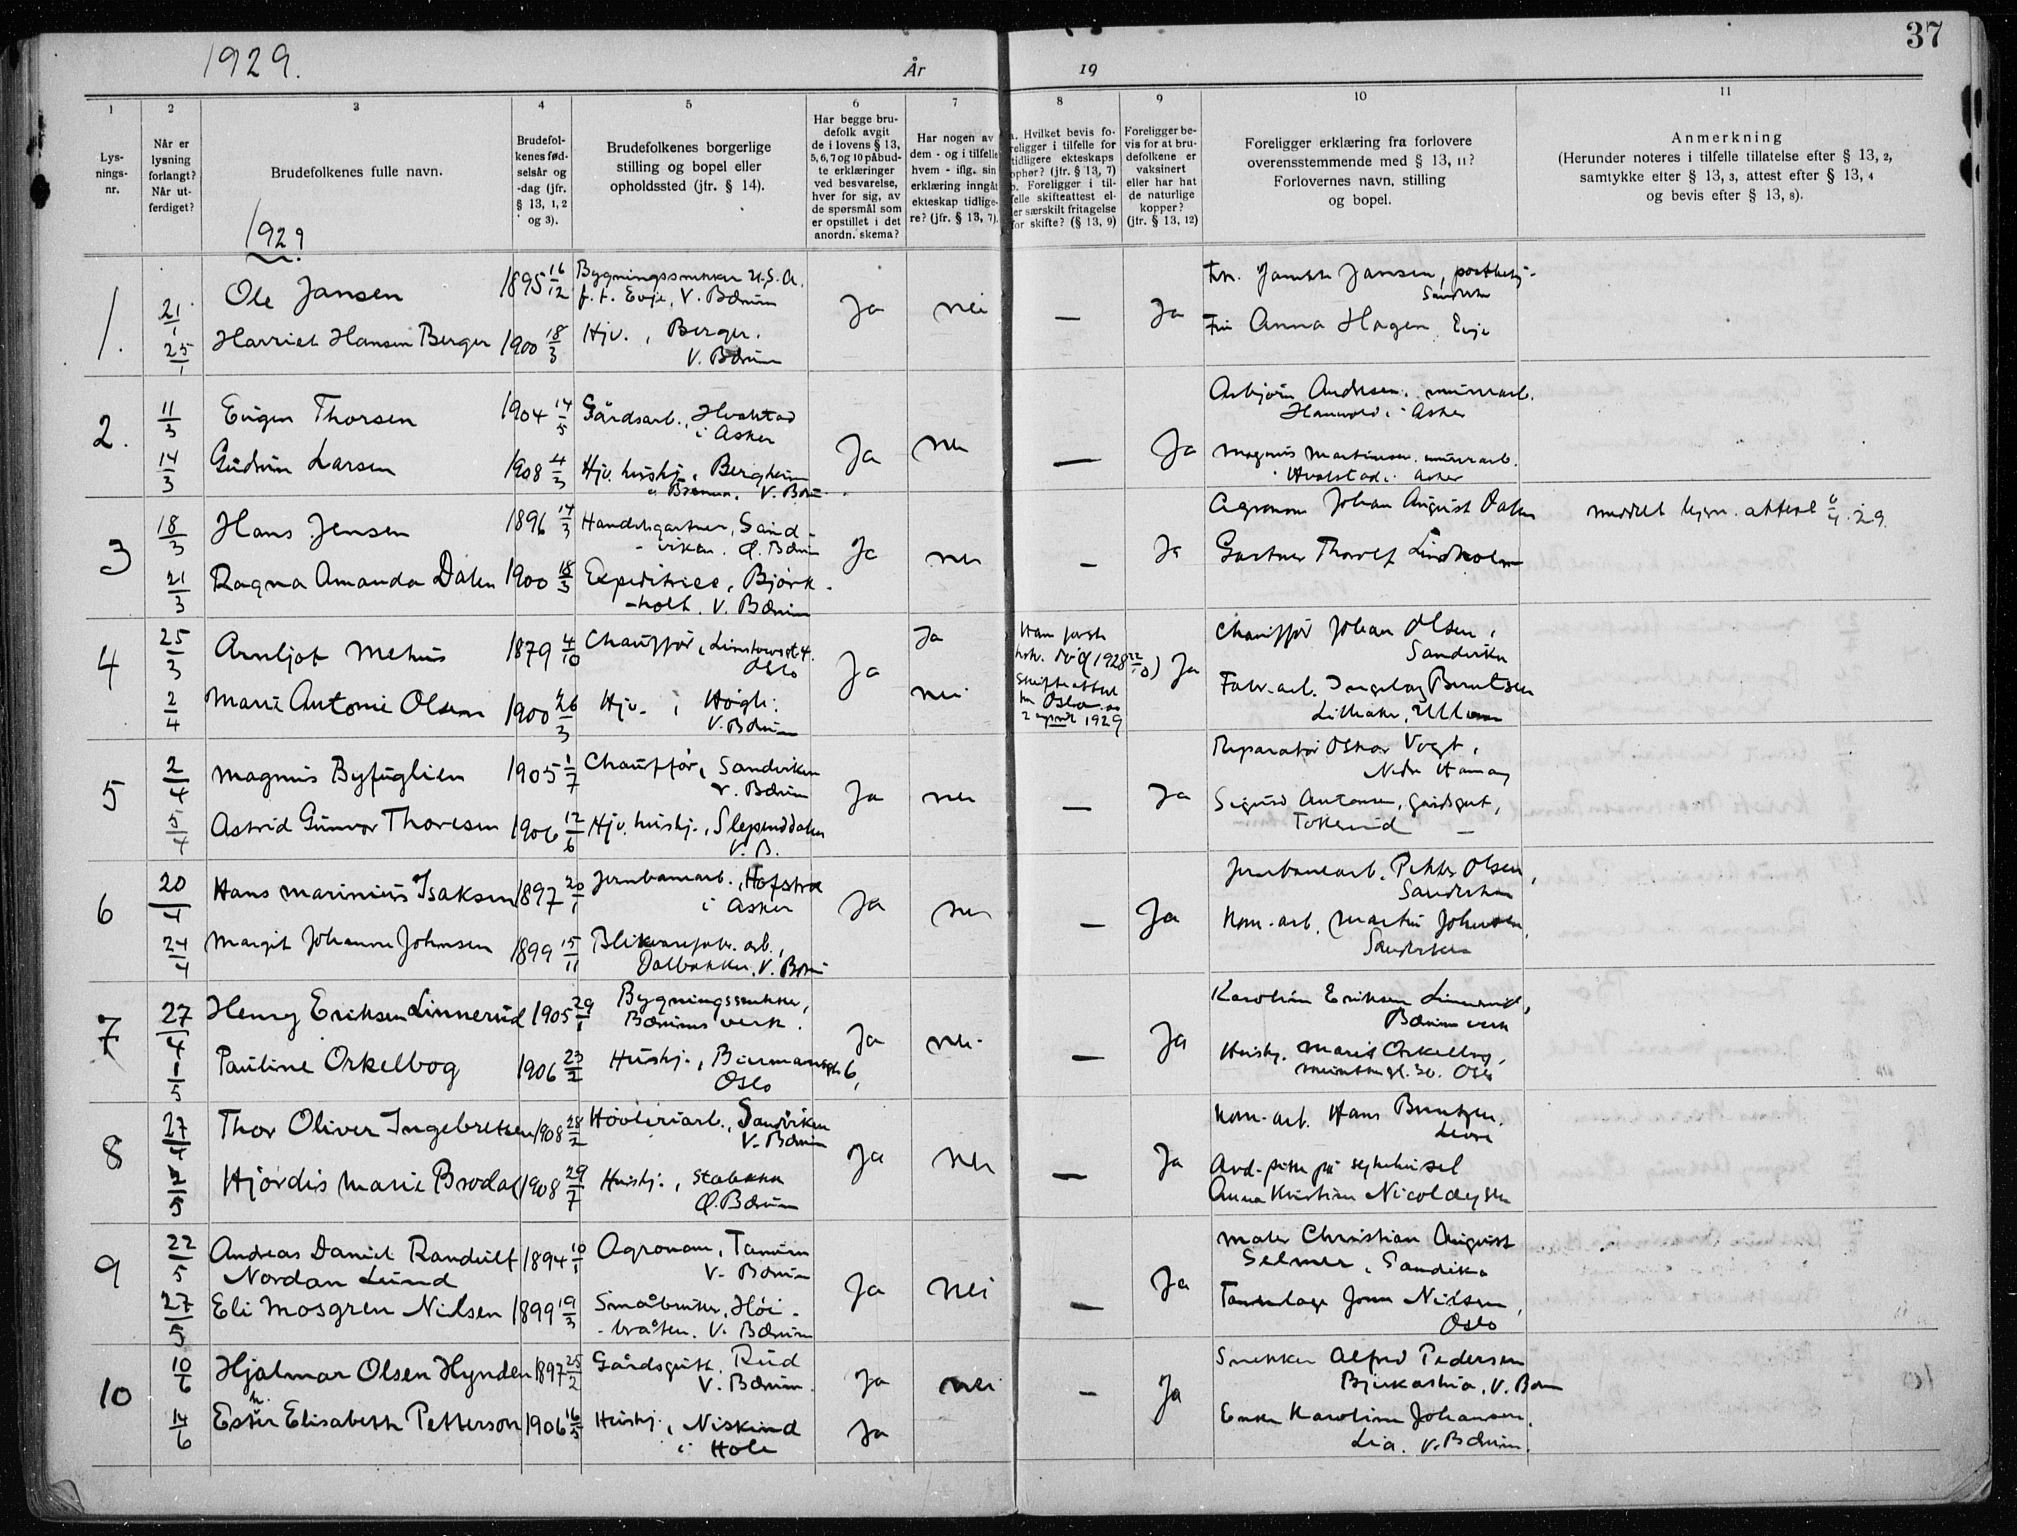 1929.
År
19
37
1
2
3
4
5
6
7
8
9
10
11
Lys-
nings-
nr.
Når er
lysning
forlangt?
Når ut-
ferdiget?
Brudefolkenes fulle navn.
Brudefol-
kenes fød-
selsår og
-dag (jfr.
§ 13, 1, 2
og 3).
Brudefolkenes borgerlige
stilling og bopel eller
opholdssted (jfr. § 14).
Har begge bru-
defolk avgit
de i lovens § 13,
5, 6, 7 og 10 påbud-
te erklæringer
ved besvarelse,
hver for sig, av
de spørsmål som
er opstillet i det
anordn. skema?
Har nogen av
dem - og i tilfelle
hvem - iflg. sin
erklæring inngåt
ekteskap tidlige-
re? (jfr. § 13, 7).
a. Hvilket bevis fo-
religger i tilfelle for
tidligere ekteskaps
ophør? (jfr. § 13, 7)
b. Foreligger i til-
felle skifteattest el-
ler særskilt fritagelse
for skifte? (§ 13, 9)
Foreligger be-
vis for at bru-
defolkene er
vaksinert
eller har hat
de naturlige
kopper?
(jfr. § 13, 12)
Foreligger erklæring fra forlovere
overensstemmende med § 13, 11?
Forlovernes navn, stilling
og bopel.
Anmerkning
(Herunder noteres i tilfelle tillatelse efter § 13, 2,
samtykke efter § 13, 3, attest efter § 13, 4
og bevis efter § 13, 8).
1929
1.
21/1
25/1
Ole Jansen
1895 16/12
Bygningssnekker U.S.A.
p.t. Evje, V. Bærum
Harriet Hansen Berger
1900 18/3
Hjv., Berger.
V. Bærum
Ja
nei
—
Ja
Jansen,
Sandvika
Anna Hagen Evje
2.
11/3
14/3
Eugen Thorsen
1904 14/5
Gårdsarb., Hvalstad
i Asker
Gudrun Larsen
1908 4/3
Hjv. hushj., Bergheim
V. Bærum
Ja
nei
—
Ja
Asbjørn Andresen, murarb.
i Asker
Magnus Martinsen, murarb.
Hvalstad i Asker
3
18/3
21/3
Hans Jensen
1896 14/3
Handelsgartner, Sand-
-viken. Ø. Bærum
Ragna Amanda Dalen
1900 18/3
Expeditrice, Bjørk-
-holt. V. Bærum
Ja
nei
—
Ja
Agronom Johan August Dalen
Gartner Thorolf Lindholm
meddelt lysn. attest 6/4.29.
4
25/3
2/4
Arnljot Mehus
1879 4/10
Chauffør, Linstowsgt 4.
Oslo
Marie Antonie Olsen
1900 26/3
Hjv., Høgli.
V. Bærum
Ja
Ja
nei.
død 1928 22/10)
Skifteattest
Oslo
2 april 1929
Ja
Chauffør Johan Olsen,
Sandvika
Fabr.-arb. Ingolay Berntsen
Lilleaker, Ullern
5
2/4
5/4
Magnus Byfuglien
1905 1/7
Chauffør, Sandviken
V. Bærum
Astrid Gunvor Thoresen
1906 12/6
Hjv. hushj., Slependdalen
V. B.
Ja
nei
—
Ja
Reparatør Oskar Vogt,
Nedre
Sigurd Antonsen, gårdsgut,
Tokerud —
6
20/4
24/4
Hans Marinius Isaksen
1897 20/1
Jernbanearb., Hofstad
i Asker
Margit Johanne Johnsen
1899 15/11
Blikvarefabr. arb.,
Dalbakken, V. Bærum
Ja
nei
—
Ja
Jernbanearb. Petter Olsen,
Sandviken
Kom.-arb. Martin Johnsen,
Sandviken
7
27/4
1/5
Henry Eriksen Linnerud
1905 29/1
Bygningssnekker,
Bærums verk.
Pauline Orkelbog
1906 23/2
Hushj., Biermannsgt 6,
Oslo
Ja
nei
—
Ja
Eriksen Linnerud,
Bærums verk
Hushj. Marie Orkelbog,
30. Oslo
8
27/4
2/5
Thor Oliver Ingebretsen
1908 28/2
Høvleriarb., Sandviken
V. Bærum
Hjørdis Marie Brodal
1908 29/7
Hushj., Stabekk
Ø. Bærum
Ja
nei
—
Ja
Kom.-arb. Hans Berntzen,
Levre
Avd. på sykehuset
Anna Kristine Nicoldaysen
9
22/5
27/5
Andreas Daniel Randulf
Nordan Lund
1894 10/1
Agronom, Tanum
V. Bærum
Eli Mosgren Nilsen
1899 19/3
Småbruker, Høi-
-bråten. V. Bærum
Ja
nei
—
Ja
Maler Christian August
Selmer, Sandvika
Tannlæge Jonn Nilsen,
Oslo
10
10/6
14/6
Hjalmar Olsen Hynden
1897 25/2
Gårdsgutt. Rud
V. Bærum.
Ester Elisabeth Petterson
h
1906 16/5
Hushj., Niskind
i Hole
Ja
Ja
nei
—
Ja
Snekker Alfred Pedersen
V. Bærum
Enke Karoline Johansen.
Lia. V. Bærum.